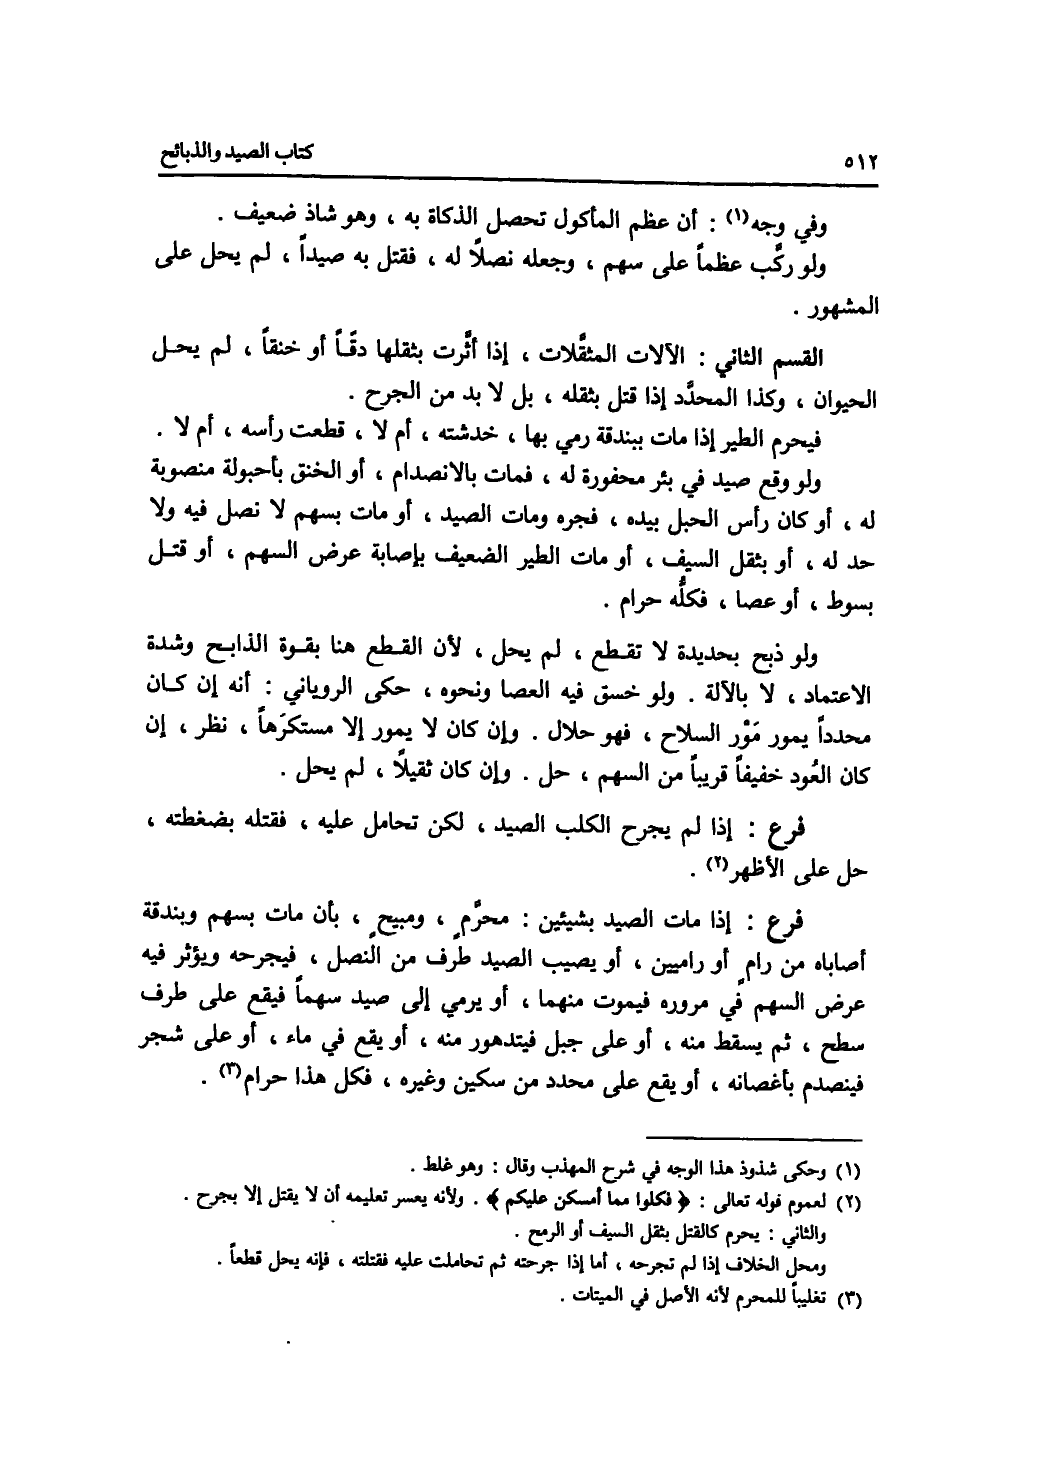 ٥١٢
كتاب الصيد والذبائح
وفي وجه(١) : أن عظم المأكول تحصل الذكاة به ، وهو شاذ ضعيف .
ولو ركَّب عظماً على سهم ، وجعله نصلاً له ، فقتل به صيداً ، لم يحل على
المشهور .
القسم الثاني : الآلات المثقَّلات ، إذا أثَّرت بثقلها دقّاً أو خنقاً ، لم يحل
الحيوان ، وكذا المحدَّد إذا قتل بثقله ، بل لا بد من الجرح .
فيحرم الطير إذا مات ببندقة رمي بها ، خدشته ، أم لا ، قطعت رأسه ، أم لا .
ولو وقع صيد في بئر محفورة له ، فمات بالانصدام ، أو الخنق بأحبولة منصوبة
له ، أو كان رأس الحبل بيده ، فجره ومات الصيد ، أو مات بسهم لا نصل فيه ولا
حد له ، أو بثقل السيف ، أو مات الطير الضعيف بإصابة عرض السهم ، أو قتل
بسوط ، أو عصا ، فكلُّه حرام .
ولو ذبح بحديدة لا تقطع ، لم يحل ، لأن القطع هنا بقوة الذابح وشدة
الاعتماد ، لا بالآلة . ولو خسق فيه العصا ونحوه ، حكى الروياني : أنه إن كان
محدداً يمور مَوْر السلاح ، فهو حلال . وإن كان لا يمور إلا مستكرَهاً ، نظر ، إن
كان العُود خفيفاً قريباً من السهم ، حل . وإن كان ثقيلاً ، لم يحل .
فرع : إذا لم يجرح الكلب الصيد ، لكن تحامل عليه ، فقتله بضغطته ،
حل على الأظهر(٢) .
فرع : إذا مات الصيد بشيئين : محرَّمٍ ، ومبيحٍ ، بأن مات بسهم وبندقة
أصاباه من رامٍ أو راميين ، أو يصيب الصيد طرف من النصل ، فيجرحه ويؤثر فيه
عرض السهم في مروره فيموت منهما ، أو يرمي إلى صيد سهماً فيقع على طرف
سطح ، ثم يسقط منه ، أو على جبل فيتدهور منه ، أو يقع في ماء ، أو على شجر
فينصدم بأغصانه ، أو يقع على محدد من سكين وغيره ، فكل هذا حرام(٣) .
(١) وحكى شذوذ هذا الوجه في شرح المهذب وقال : وهو غلط .
(٢) لعموم قوله تعالى : ﴿ فكلوا مما أمسكن عليكم ﴾ . ولأنه يعسر تعليمه أن لا يقتل إلا بجرح .
والثاني : يحرم كالقتل بثقل السيف أو الرمح .
ومحل الخلاف إذا لم تجرحه ، أما إذا جرحته ثم تحاملت عليه فقتلته ، فإنه يحل قطعاً .
(٣) تغليباً للمحرم لأنه الأصل في الميتات .